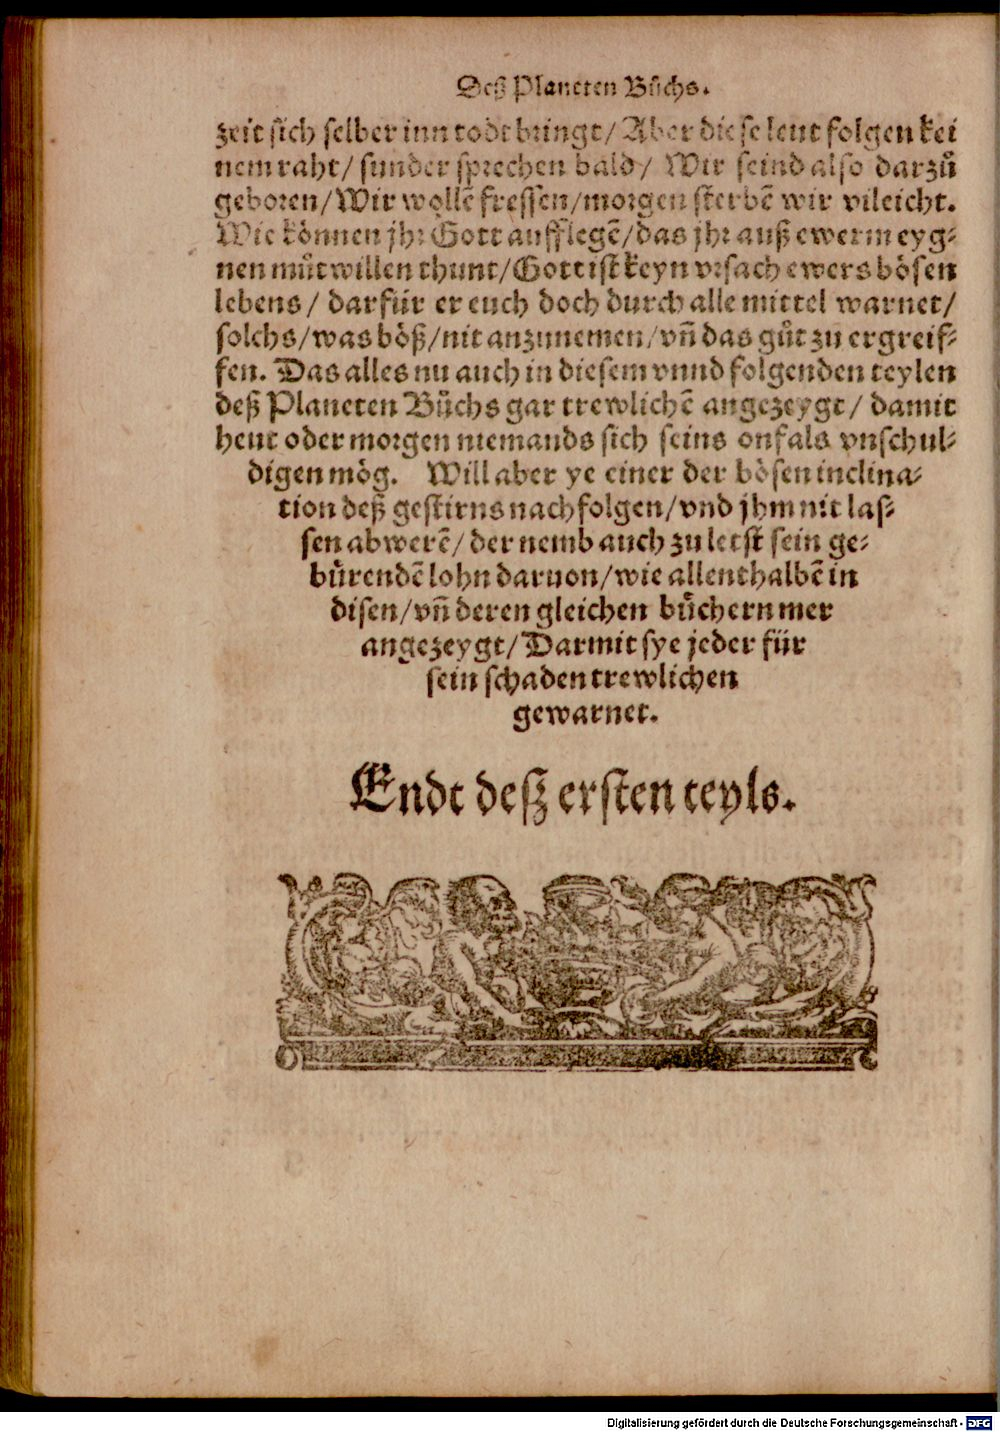 Deß Planeten Bůchs.
zeit sich selber inn todt bringt/Aber diese leut folgen kei
nem raht/ sunder sprechen bald/ Wir seind also darzů
geboren/Wir wollẽ fressen/morgen sterbẽ wir vileicht.
Wie können jhr Gott aufflegẽ/das jhr auß ewerm eyg⸗
nen můtwillen thunt/Gott ist keyn vrsach ewers bösen
lebens/ darfür er euch doch durch alle mittel warnet/
solchs/was böß/nit anzunemen/vñ das gůt zu ergreif⸗
fen. Das alles nu auch in diesem vnnd folgenden teylen
deß Planeten Bůchs gar trewlichẽ angezeygt/ damit
heut oder morgen niemands sich seins onfals vnschul⸗
digen mög. Will aber ye einer der bösen inclina⸗
tion deß gestirns nachfolgen/vnd jhm nit las⸗
sen abwerẽ/der nemb auch zu letst sein ge⸗
bürendẽ lohn daruon/wie allenthalbẽ in
disen/vñ deren gleichen bůchern mer
angezeygt/Darmit sye jeder für
sein schaden trewlichen
gewarnet.
Endt deß ersten teyls.
Digitalisierung gefördert durch die Deutsche Forschungsgemeinschaft - DFG